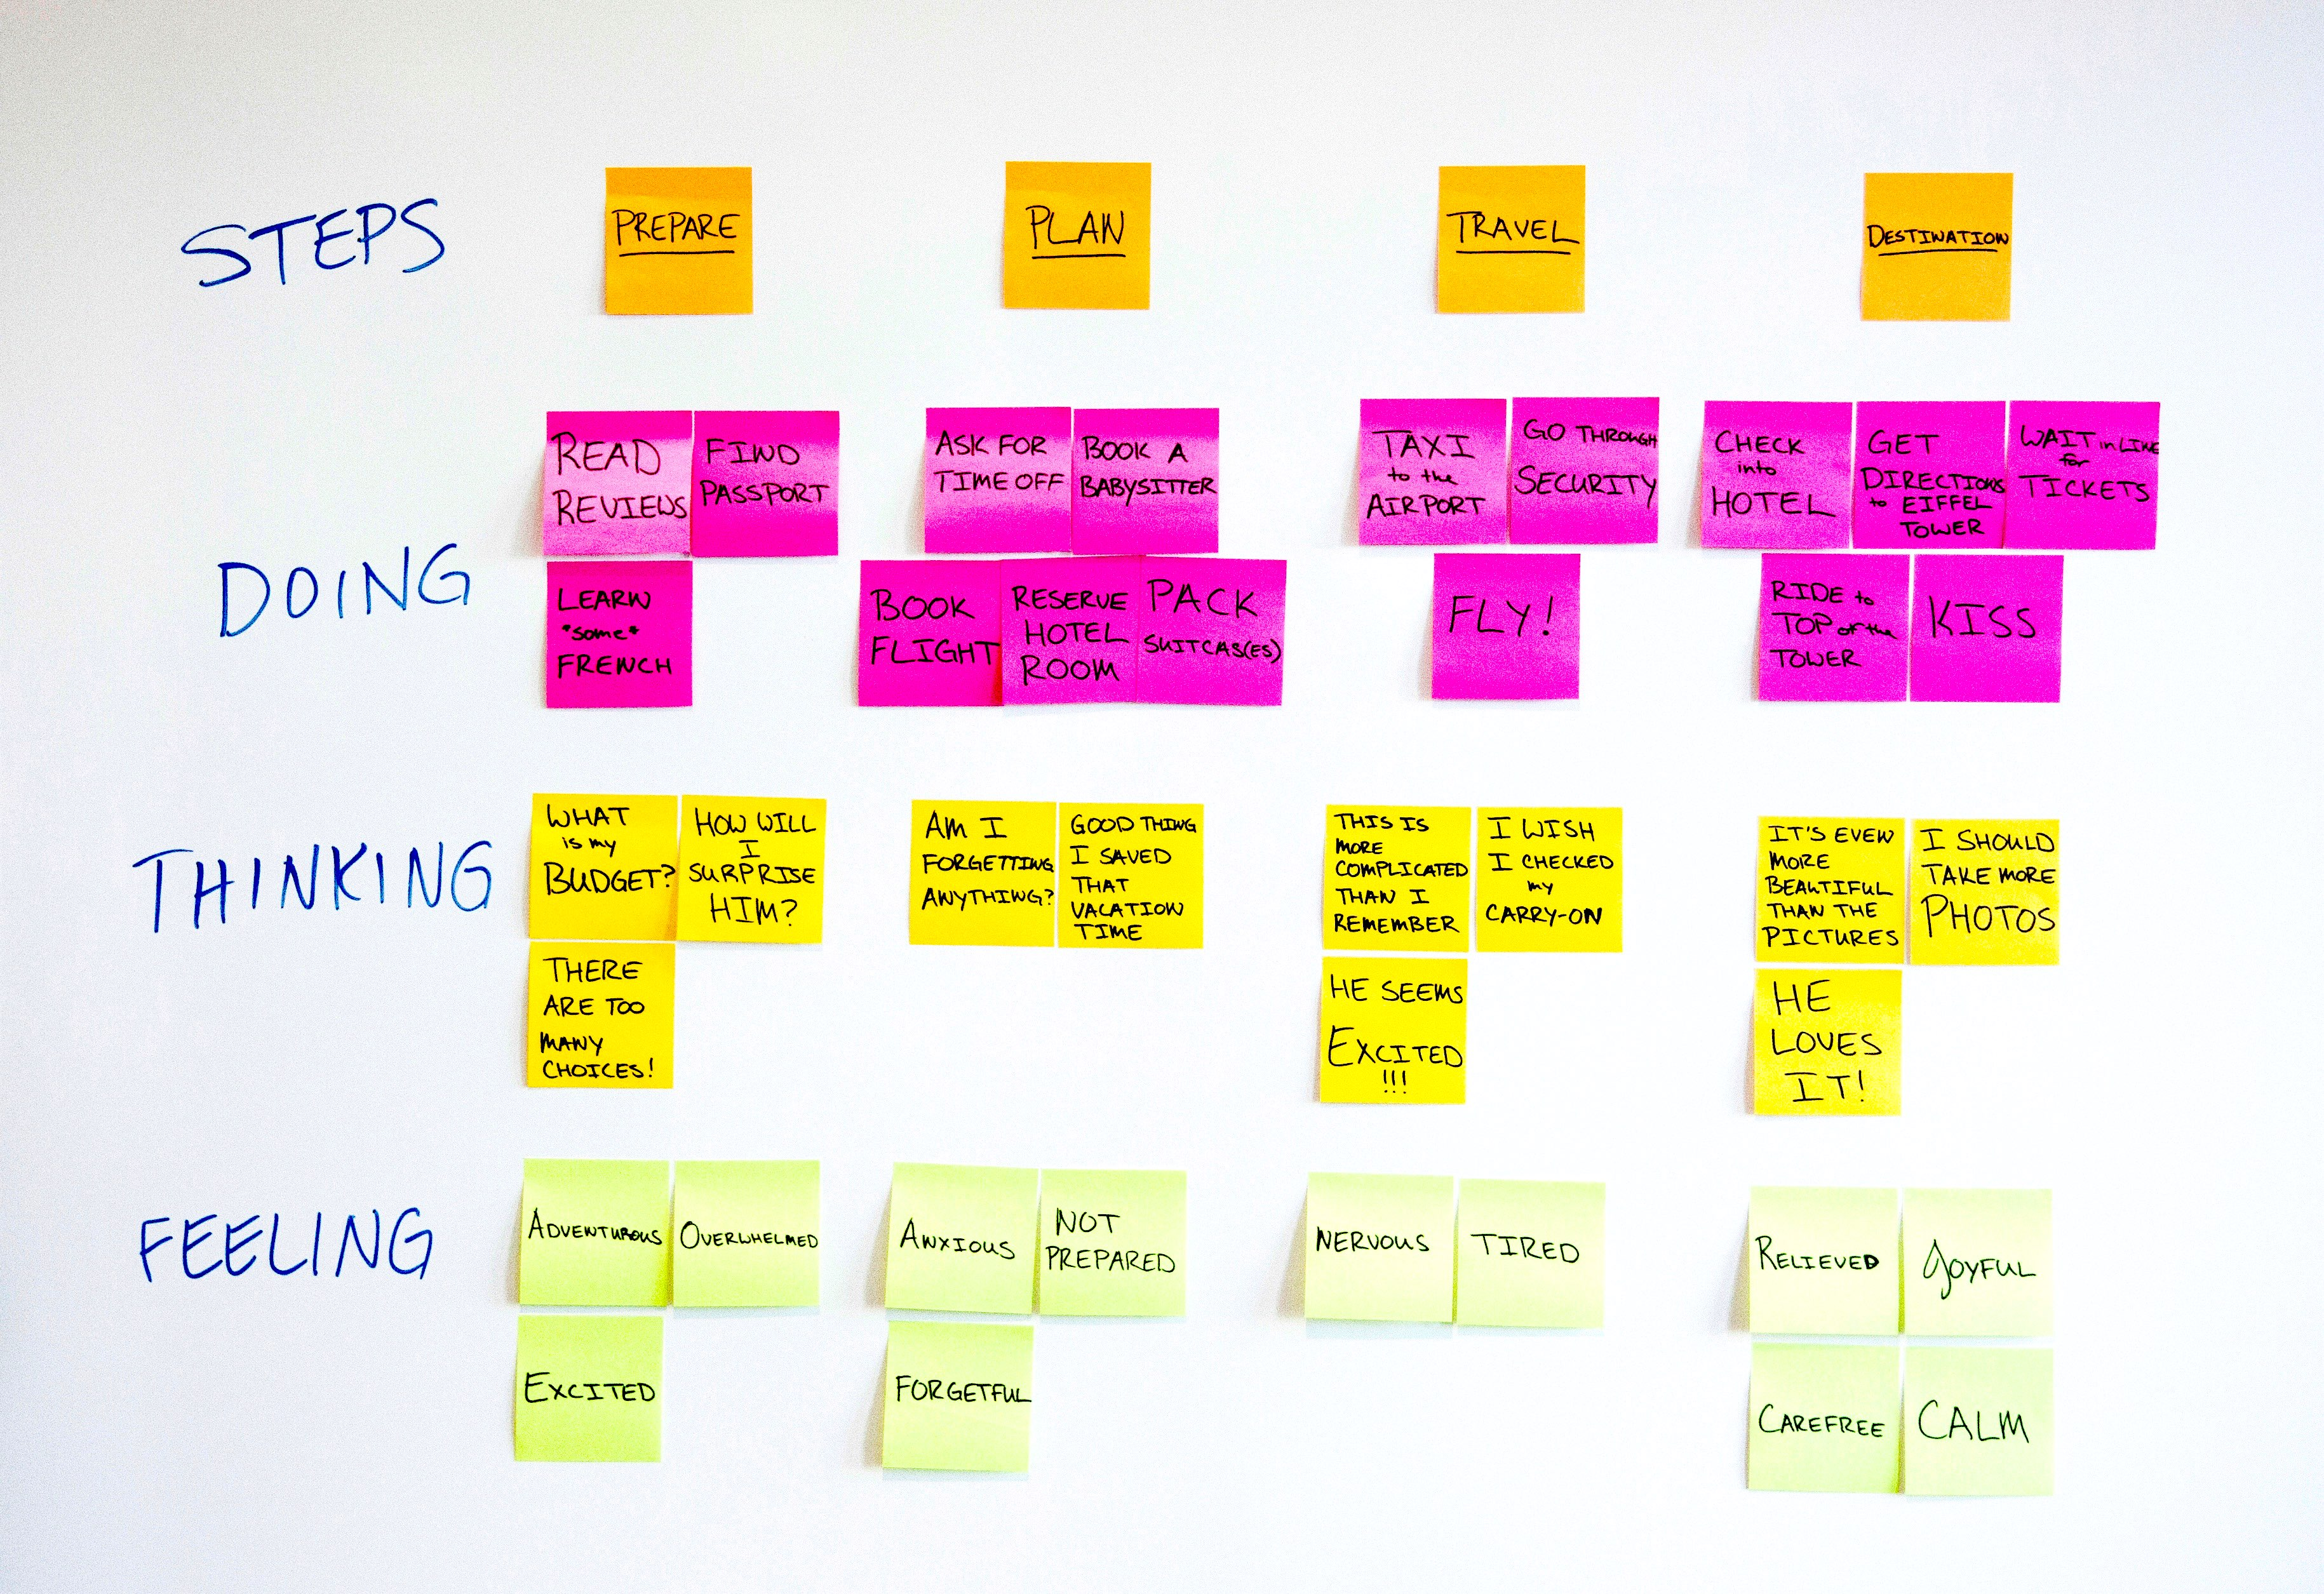 STEPS
PREPARE
PLAN
TRAVEL
DESTINATION
DOING
READ
REVIEWS
FIND
PASSPORT
LEARN
*some*
FRENCH
ASK FOR
TIME OFF
BOOK A
BABYSITTER
BOOK
FLIGHT
RESERVE
HOTEL
ROOM
PACK
SUITCAS(ES)
TAXI
to the
AIRPORT
GO THROUGH
SECURITY
FLY!
CHECK
into
HOTEL
GET
DIRECTIONS
to EIFFEL
TOWER
WAIT in LINE
for
TICKETS
RIDE to
TOP of the
TOWER
KISS
THINKING
WHAT
is my
BUDGET?
HOW WILL
I
SURPRISE
HIM?
THERE
ARE TOO
MANY
CHOICES!
AM I
FORGETTING
ANYTHING?
GOOD THING
I SAVED
THAT
VACATION
TIME
THIS IS
MORE
COMPLICATED
THAN I
REMEMBER
I WISH
I CHECKED
my
CARRY-ON
HE SEEMS
EXCITED
!!!
IT'S EVEN
MORE
BEAUTIFUL
THAN THE
PICTURES
I SHOULD
TAKE MORE
PHOTOS
HE
LOVES
IT!
FEELING
ADVENTUROUS
OVERWHELMED
EXCITED
ANXIOUS
NOT
PREPARED
FORGETFUL
NERVOUS
TIRED
RELIEVED
JOYFUL
CAREFREE
CALM